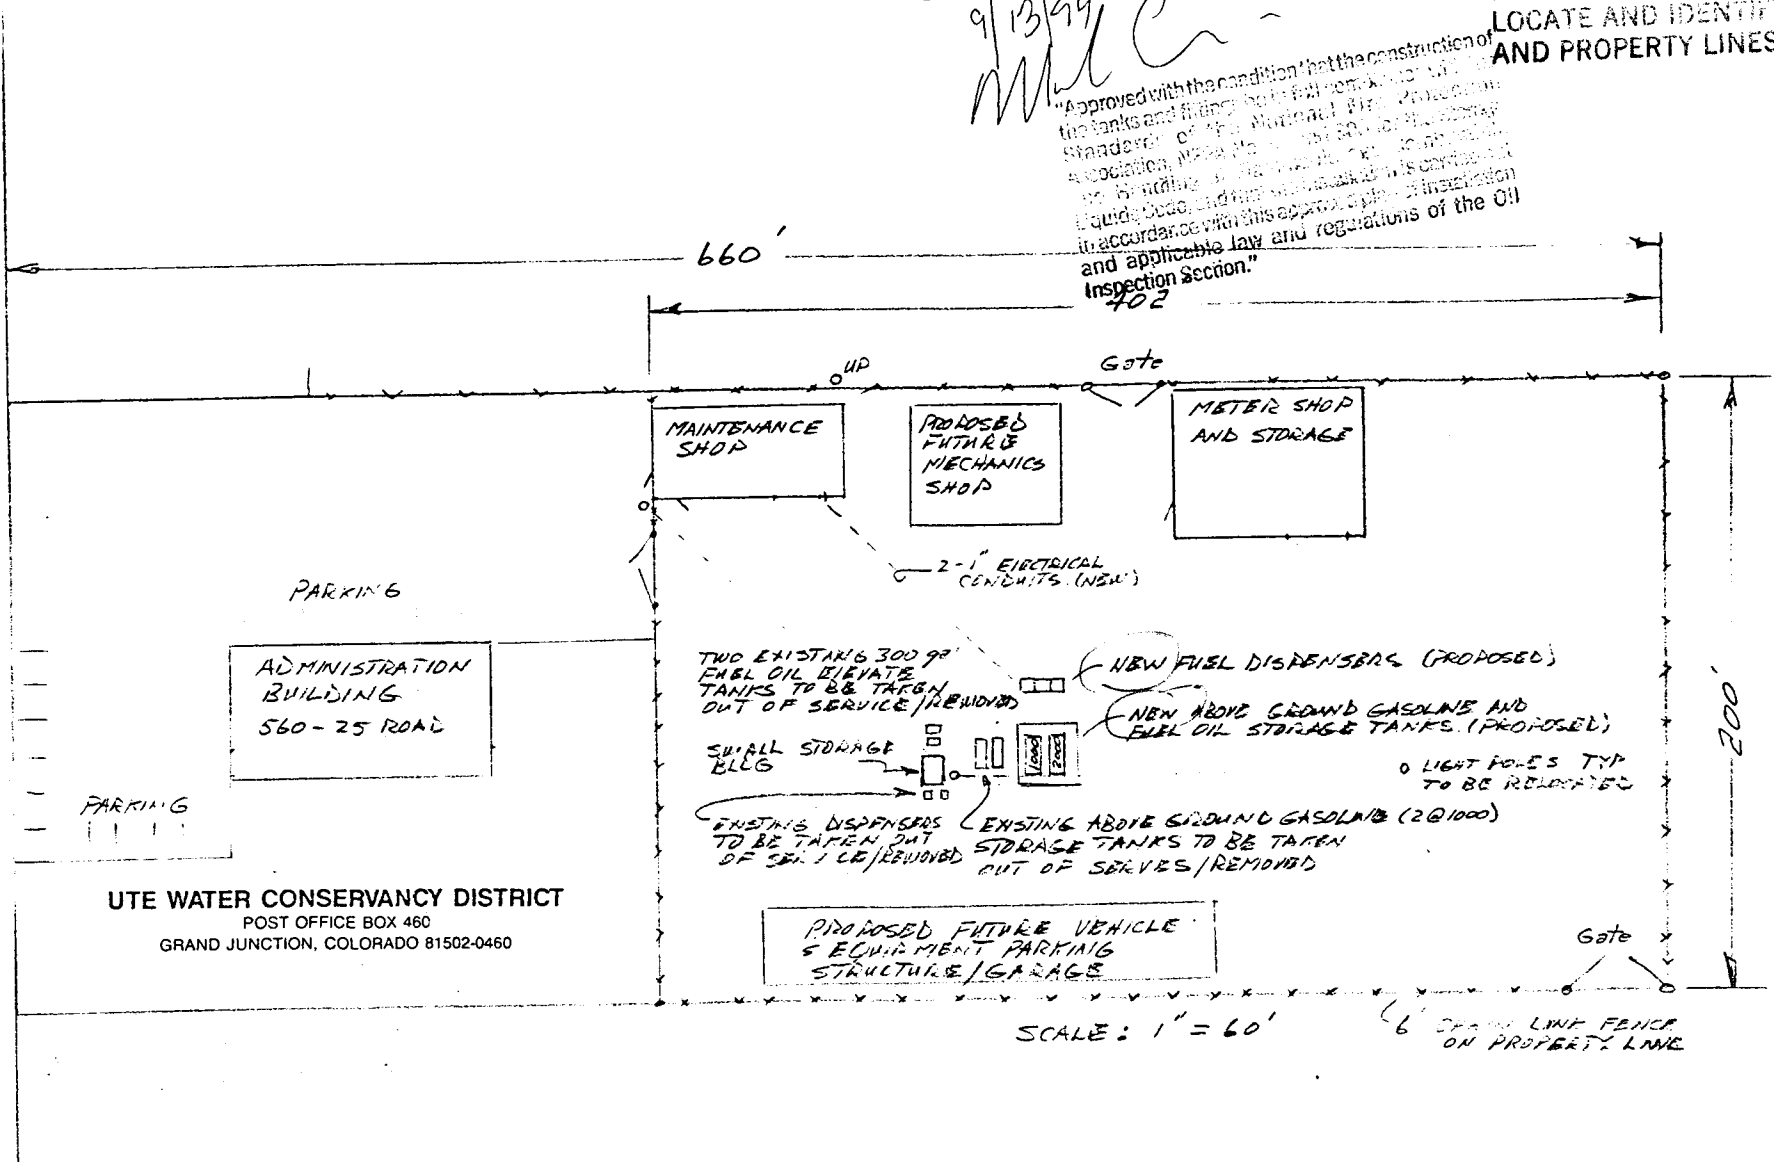 9/13/99
LOCATE AND IDENTIF
AND PROPERTY LINES
"Approved with the condition that the construction of
the tanks and fittings be in full compliance with
Standards of the National Fire Protection
Association,
Liquids Code, and that installation is carried out
in accordance with this approved plan of installation
and applicable law and regulations of the Oil
Inspection Section."
660'
402
UP
Gate
MAINTENANCE
SHOP
PROPOSED
FUTURE
MECHANICS
SHOP
METER SHOP
AND STORAGE
2-1" ELECTRICAL
CONDUITS (NEW)
PARKING
ADMINISTRATION
BUILDING
560-25 ROAD
TWO EXISTING 300 gal
FUEL OIL ELEVATE
TANKS TO BE TAKEN
OUT OF SERVICE/REMOVED
NEW FUEL DISPENSERS (PROPOSED)
NEW ABOVE GROUND GASOLINE AND
FUEL OIL STORAGE TANKS (PROPOSED)
SMALL STORAGE
BLDG
1000
2000
LIGHT POLES TYP
TO BE RELOCATED
200'
PARKING
EXISTING DISPENSERS
TO BE TAKEN OUT
OF SERVICE/REMOVED
EXISTING ABOVE GROUND GASOLINE (2@1000)
STORAGE TANKS TO BE TAKEN
OUT OF SERVES/REMOVED
UTE WATER CONSERVANCY DISTRICT
POST OFFICE BOX 460
GRAND JUNCTION, COLORADO 81502-0460
PROPOSED FUTURE VEHICLE
& EQUIPMENT PARKING
STRUCTURE/GARAGE
Gate
SCALE: 1" = 60'
6' CHAIN LINK FENCE
ON PROPERTY LINE